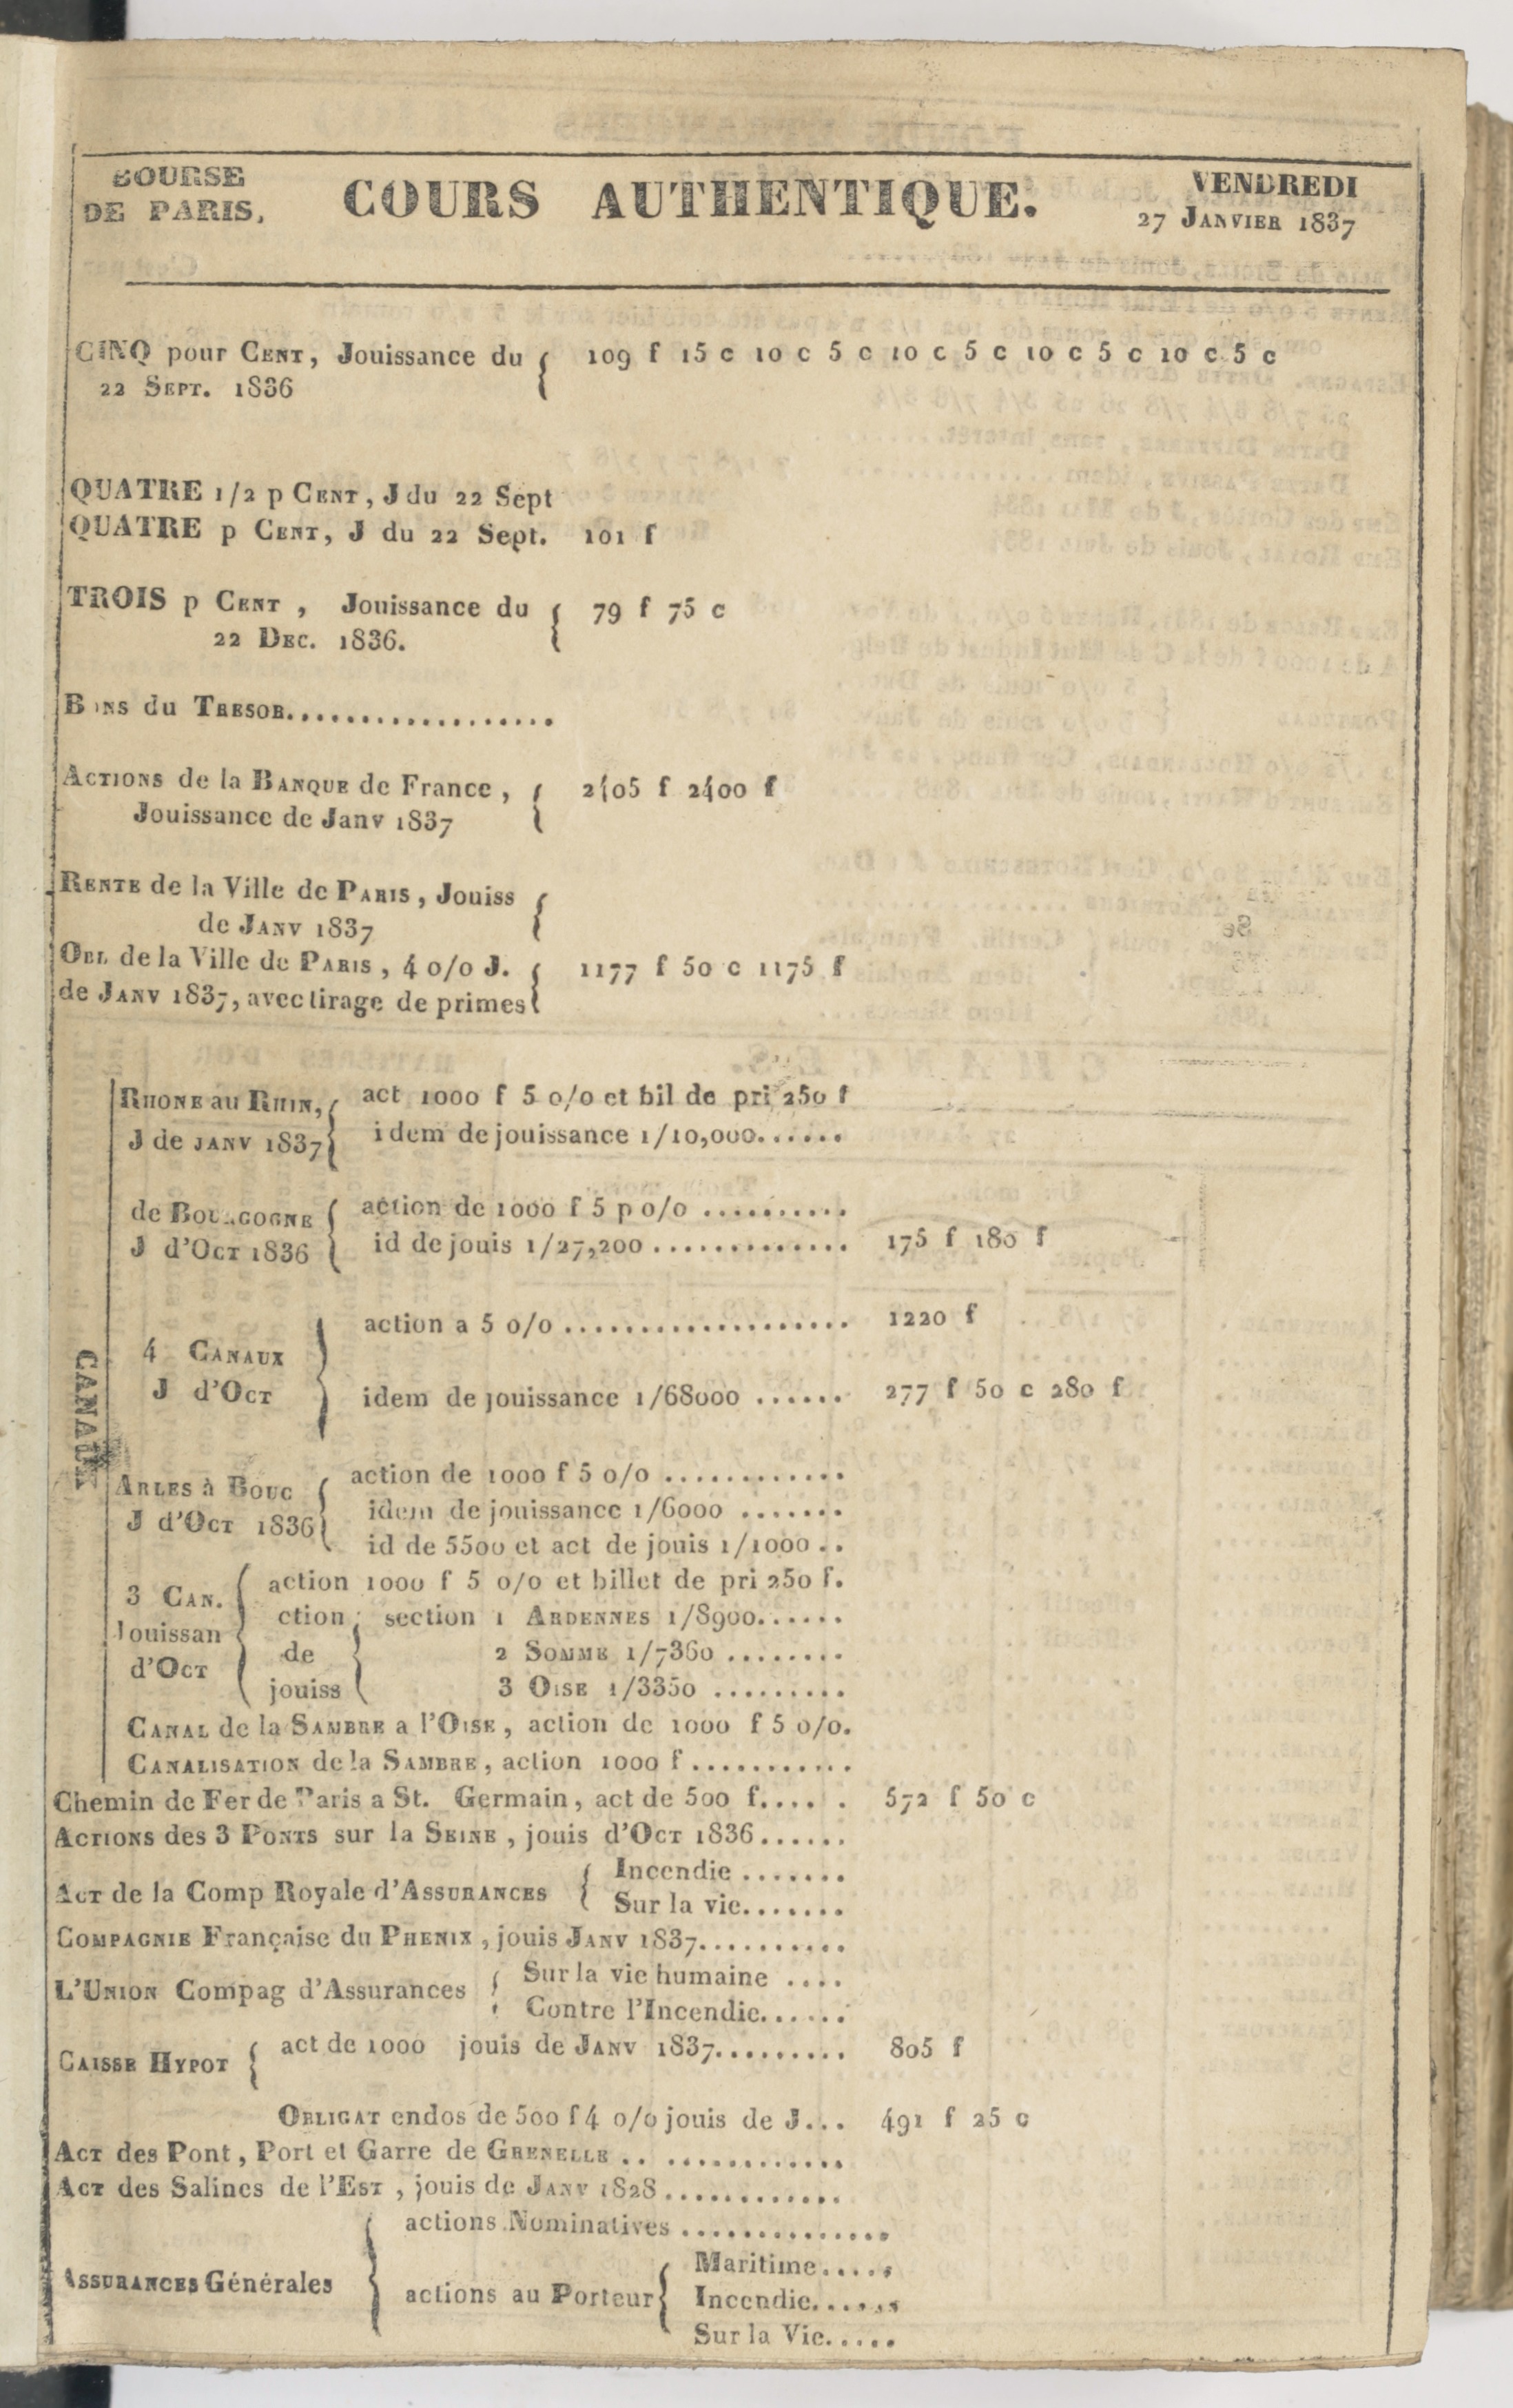 BOURSE
DE PARIS,
COURS AUTHENTIQUE.
VENDREDI
27 JANVIER 1837
CINQ pour CENT, Jouissance du { 109 f 15 c 10 c 5 c 10 c 5 c 10 c 5 c 10 c 5 c
22 SEPT. 1836
QUATRE 1/2 p CENT, J du 22 Sept
QUATRE p CENT, J du 22 Sept. 101 f
TROIS p CENT, Jouissance du { 79 f 75 c
22 DEC. 1836.
BONS du TRESOR..................
ACTIONS de la BANQUE de France, { 2405 f 2400 f
Jouissance de Janv 1837
RENTE de la Ville de PARIS, Jouiss {
de JANV 1837
OBL de la Ville de PARIS, 4 o/o J. { 1177 f 50 c 1175 f
de JANV 1837, avec tirage de primes
CANAUX
RHONE au RHIN, { act 1000 f 5 o/o et bil de pri 250 f
J de JANV 1837 idem de jouissance 1/10,000......
de BOURGOGNE { action de 1000 f 5 p o/o ..........
J d'OCT 1836 id de jouis 1/27,200 ............. 175 f 180 f
action a 5 o/o ................... 1220 f
4 CANAUX {
J d'OCT
idem de jouissance 1/68000 ...... 277 f 50 c 280 f
ARLES à BOUC { action de 1000 f 5 o/o ............
J d'OCT 1836 idem de jouissance 1/6000 .......
id de 5500 et act de jouis 1/1000 ..
3 CAN. { action 1000 f 5 o/o et billet de pri 250 f.
Jouissan ction { section 1 ARDENNES 1/8900......
d'OCT de 2 SOMME 1/7360 ........
jouiss 3 OISE 1/3350 .........
CANAL de la SAMBRE a l'OISE, action de 1000 f 5 o/o.
CANALISATION de la SAMBRE, action 1000 f ...........
Chemin de Fer de Paris a St. Germain, act de 500 f..... . 572 f 50 c
ACTIONS des 3 PONTS sur la SEINE, jouis d'OCT 1836......
ACT de la Comp Royale d'ASSURANCES { Incendie .......
Sur la vie.......
COMPAGNIE Française du PHENIX, jouis JANV 1837..........
L'UNION Compag d'Assurances { Sur la vie humaine ....
Contre l'Incendie......
CAISSE HYPOT { act de 1000 jouis de JANV 1837......... 805 f
OBLIGAT endos de 500 f 4 o/o jouis de J... 491 f 25 c
ACT des Pont, Port et Garre de GRENELLE .. ............
ACT des Salines de l'EST, jouis de JANV 1828............
actions Nominatives ..............
ASSURANCES Générales { actions au Porteur { Maritime.....
Incendie......
Sur la Vie.....